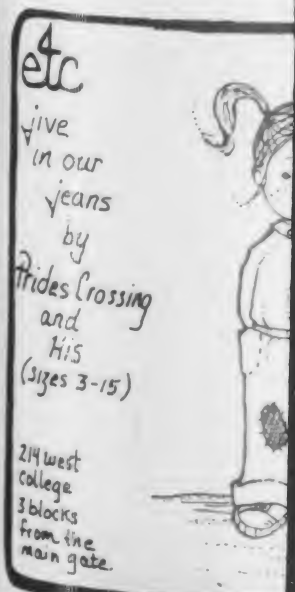 etc
jive
in our
jeans
by
Prides Crossing
and
His
(sizes 3-15)
214 west
college
3 blocks
from the
main gate.